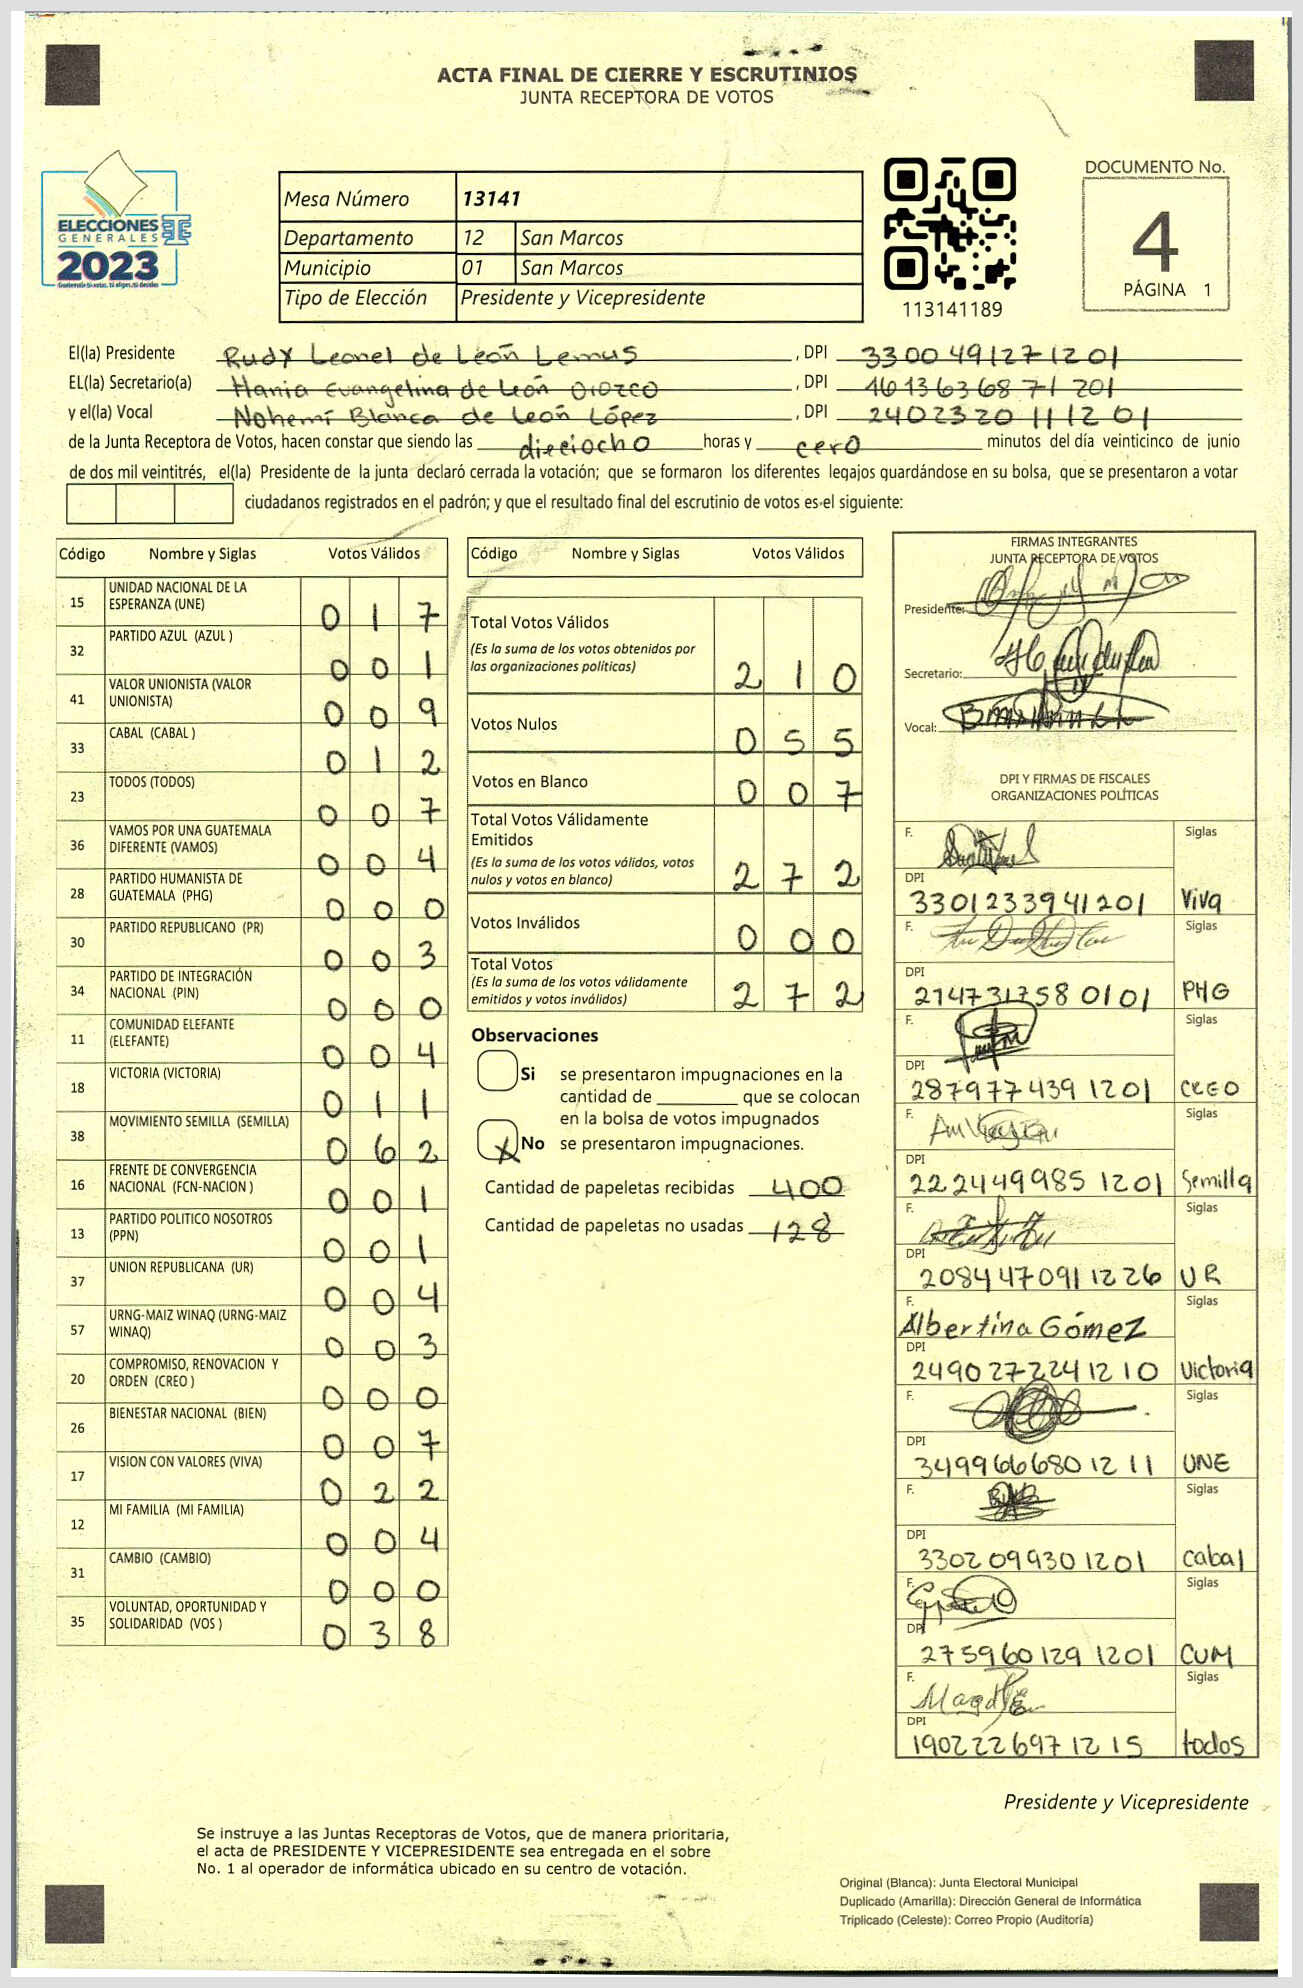 ACTA FINAL DE CIERRE Y ESCRUTINIOS
JUNTA RECEPTORA DE VOTOS
ELECCIONES
GENERALES
2023
Guatemala: Si votas, tú eliges, tú decides
Mesa Número 13141
Departamento 12 San Marcos
Municipio 01 San Marcos
Tipo de Elección Presidente y Vicepresidente
113141189
DOCUMENTO No.
4
PÁGINA 1
El(la) Presidente Rudy Leonel de León Lemus , DPI 3300491271201
EL(la) Secretario(a) Hania Evangelina de León Orozco , DPI 1613636871201
y el(la) Vocal Nohemí Blanca de León López , DPI 2402320111201
de la Junta Receptora de Votos, hacen constar que siendo las dieciocho horas y cero minutos del día veinticinco de junio
de dos mil veintitrés, el(la) Presidente de la junta declaró cerrada la votación; que se formaron los diferentes legajos guardándose en su bolsa, que se presentaron a votar
ciudadanos registrados en el padrón; y que el resultado final del escrutinio de votos es el siguiente:
Código Nombre y Siglas Votos Válidos
15 UNIDAD NACIONAL DE LA ESPERANZA (UNE) 0 1 7
32 PARTIDO AZUL (AZUL ) 0 0 1
41 VALOR UNIONISTA (VALOR UNIONISTA) 0 0 9
33 CABAL (CABAL ) 0 1 2
23 TODOS (TODOS) 0 0 7
36 VAMOS POR UNA GUATEMALA DIFERENTE (VAMOS) 0 0 4
28 PARTIDO HUMANISTA DE GUATEMALA (PHG) 0 0 0
30 PARTIDO REPUBLICANO (PR) 0 0 3
34 PARTIDO DE INTEGRACIÓN NACIONAL (PIN) 0 0 0
11 COMUNIDAD ELEFANTE (ELEFANTE) 0 0 4
18 VICTORIA (VICTORIA) 0 1 1
38 MOVIMIENTO SEMILLA (SEMILLA) 0 6 2
16 FRENTE DE CONVERGENCIA NACIONAL (FCN-NACION ) 0 0 1
13 PARTIDO POLITICO NOSOTROS (PPN) 0 0 1
37 UNION REPUBLICANA (UR) 0 0 4
57 URNG-MAIZ WINAQ (URNG-MAIZ WINAQ) 0 0 3
20 COMPROMISO, RENOVACION Y ORDEN (CREO ) 0 0 0
26 BIENESTAR NACIONAL (BIEN) 0 0 7
17 VISION CON VALORES (VIVA) 0 2 2
12 MI FAMILIA (MI FAMILIA) 0 0 4
31 CAMBIO (CAMBIO) 0 0 0
35 VOLUNTAD, OPORTUNIDAD Y SOLIDARIDAD (VOS ) 0 3 8
Código Nombre y Siglas Votos Válidos
Total Votos Válidos
(Es la suma de los votos obtenidos por
las organizaciones políticas) 2 1 0
Votos Nulos 0 5 5
Votos en Blanco 0 0 7
Total Votos Válidamente
Emitidos
(Es la suma de los votos válidos, votos
nulos y votos en blanco) 2 7 2
Votos Inválidos 0 0 0
Total Votos
(Es la suma de los votos válidamente
emitidos y votos inválidos) 2 7 2
Observaciones
Si se presentaron impugnaciones en la
cantidad de ________ que se colocan
en la bolsa de votos impugnados
X No se presentaron impugnaciones.
Cantidad de papeletas recibidas 400
Cantidad de papeletas no usadas 128
FIRMAS INTEGRANTES
JUNTA RECEPTORA DE VOTOS
Presidente:
Secretario:
Vocal:
DPI Y FIRMAS DE FISCALES
ORGANIZACIONES POLÍTICAS
F. Siglas
DPI
3301233941201 Viva
F. Siglas
DPI
2147317580101 PHG
F. Siglas
DPI
2879774391201 CREO
F. Siglas
DPI
2224499851201 Semilla
F. Siglas
DPI
2084470911226 UR
F. Siglas
Albertina Gómez
DPI
2490272241210 Victoria
F. Siglas
DPI
3499666801211 UNE
F. Siglas
DPI
3302099301201 Cabal
F. Siglas
DPI
2759601291201 CUM
F. Siglas
DPI
1902226971215 todos
Presidente y Vicepresidente
Se instruye a las Juntas Receptoras de Votos, que de manera prioritaria,
el acta de PRESIDENTE Y VICEPRESIDENTE sea entregada en el sobre
No. 1 al operador de informática ubicado en su centro de votación.
Original (Blanca): Junta Electoral Municipal
Duplicado (Amarilla): Dirección General de Informática
Triplicado (Celeste): Correo Propio (Auditoría)